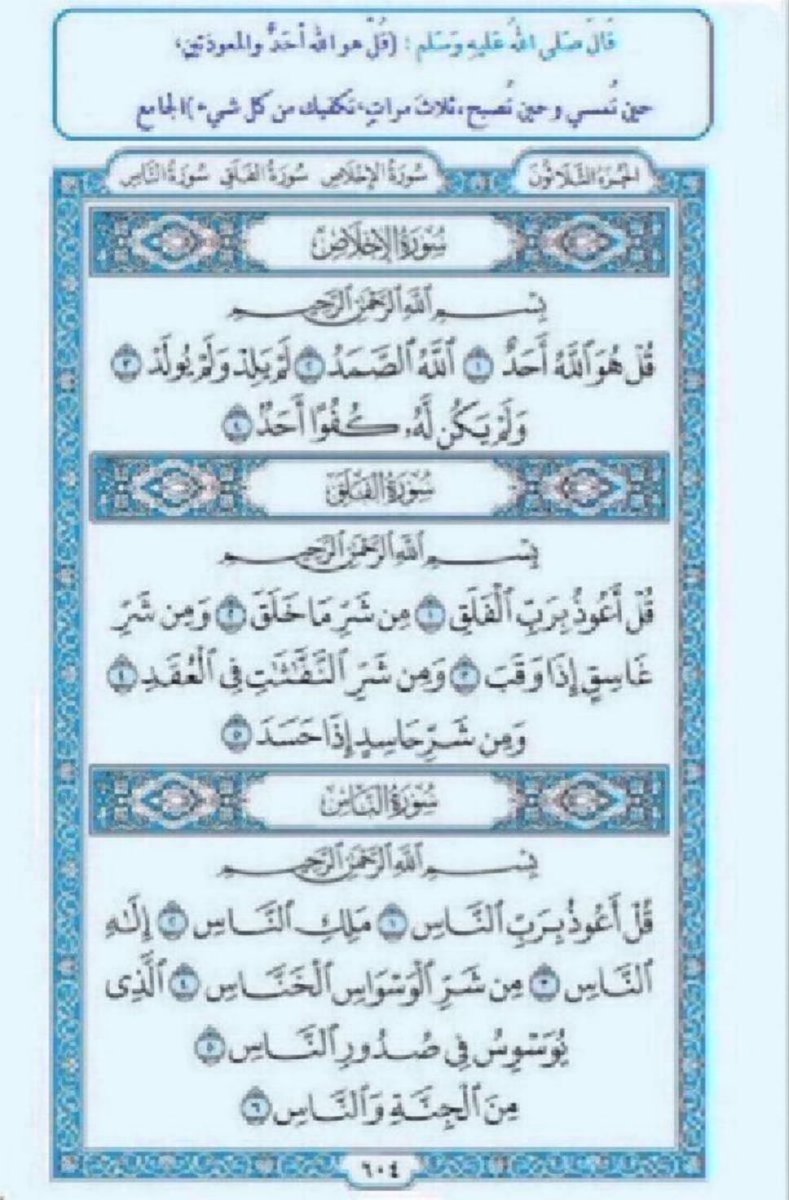 قَالَ صَلى اللهُ عَليهِ وَسَلم : (قُلْ هو الله أحَدٌ والمعوذتين،
حين تُمسي وحين تُصبح، ثلاثَ مراتٍ، تكفيك من كل شيء) الجامع
سُورَةُ الإِخْلَاصِ سُورَةُ الفَلَقِ سُورَةُ النَّاسِ
الجُزءُ الثَّلَاثُونَ
سُورَةُ الإِخْلَاصِ
بِسْمِ ٱللَّهِ ٱلرَّحْمَٰنِ ٱلرَّحِيمِ
قُلْ هُوَ ٱللَّهُ أَحَدٌ ١ ٱللَّهُ ٱلصَّمَدُ ٢ لَمْ يَلِدْ وَلَمْ يُولَدْ ٣
وَلَمْ يَكُن لَّهُۥ كُفُوًا أَحَدٌۢ ٤
سُورَةُ الفَلَقِ
بِسْمِ ٱللَّهِ ٱلرَّحْمَٰنِ ٱلرَّحِيمِ
قُلْ أَعُوذُ بِرَبِّ ٱلْفَلَقِ ١ مِن شَرِّ مَا خَلَقَ ٢ وَمِن شَرِّ
غَاسِقٍ إِذَا وَقَبَ ٣ وَمِن شَرِّ ٱلنَّفَّٰثَٰتِ فِى ٱلْعُقَدِ ٤
وَمِن شَرِّ حَاسِدٍ إِذَا حَسَدَ ٥
سُورَةُ النَّاسِ
بِسْمِ ٱللَّهِ ٱلرَّحْمَٰنِ ٱلرَّحِيمِ
قُلْ أَعُوذُ بِرَبِّ ٱلنَّاسِ ١ مَلِكِ ٱلنَّاسِ ٢ إِلَٰهِ
ٱلنَّاسِ ٣ مِن شَرِّ ٱلْوَسْوَاسِ ٱلْخَنَّاسِ ٤ ٱلَّذِى
يُوَسْوِسُ فِى صُدُورِ ٱلنَّاسِ ٥
مِنَ ٱلْجِنَّةِ وَٱلنَّاسِ ٦
٦٠٤